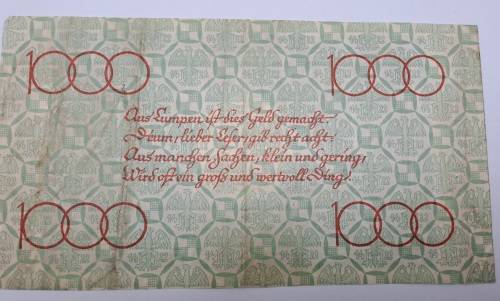 1000 1000
Aus Lumpen ist dies Geld gemacht.
Drum, lieber Leser, gib recht acht:
Aus manchen Sachen, klein und gering,
Wird oft ein groß und wertvoll Ding!
1000 1000